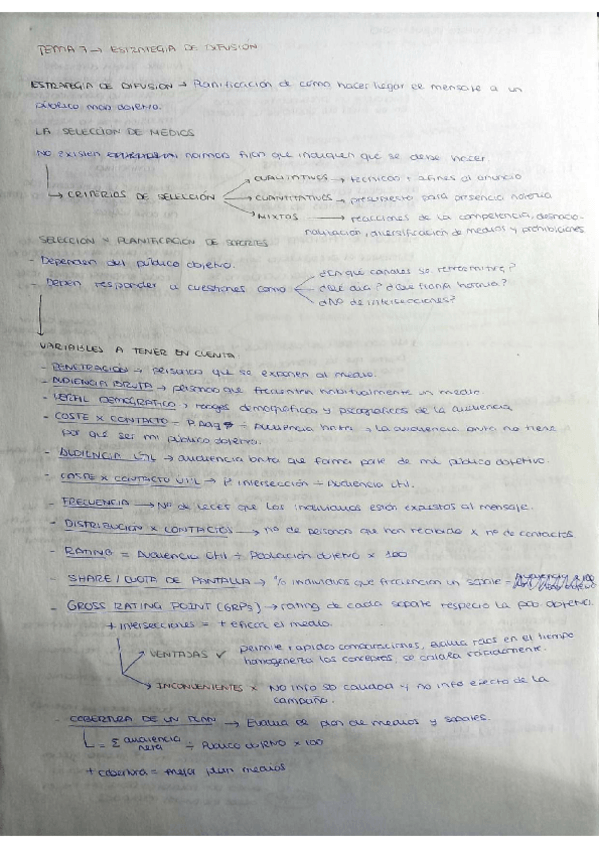 TEMA 7 → ESTRATEGIA DE DIFUSIÓN
ESTRATEGIA DE DIFUSIÓN → Planificación de cómo hacer llegar el mensaje a un
público más objetivo.
LA SELECCIÓN DE MEDIOS
No existen normas fijas que indiquen que se debe hacer.
→ CRITERIOS DE SELECCIÓN
CUALITATIVOS → técnicos + afines al anuncio
CUANTITATIVOS → presupuesto para presencia notoria
MIXTOS → reacciones de la competencia, desnacio-
nalización, diversificación de medios y prohibiciones
SELECCIÓN Y PLANIFICACIÓN DE SOPORTES
- Dependen del público objetivo.
- Deben responder a cuestiones como
¿En que canales se retransmitirá?
¿Que día? ¿Que franja horaria?
¿Nº de intersecciones?
VARIABLES A TENER EN CUENTA
- PENETRACIÓN → personas que se exponen al medio.
- AUDIENCIA BRUTA → personas que frecuentan habitualmente un medio.
- PERFIL DEMOGRÁFICO > rasgos demográficos y psicográficos de la audiencia
- COSTE X CONTACTO = ÷ Audiencia bruta → la audiencia bruta no tiene
por qué ser mi público objetivo.
- AUDIENCIA ÚTIL → audiencia bruta que forma parte de mi público objetivo.
- COSTE X CONTACTO ÚTIL → Pº intersección ÷ Audiencia útil.
- FRECUENCIA → Nº de veces que los individuos están expuestos al mensaje.
- DISTRIBUCIÓN X CONTACTOS → nº de personas que han recibido x nº de contactos.
- RATING = Audiencia útil ÷ Población objetivo x 100
- SHARE / CUOTA DE PANTALLA → % individuos que frecuentan un soporte =
- GROSS RATING POINT (GRPs) → rating de cada soporte respecto la pob. objetivo.
+ intersecciones = + eficaz el medio.
VENTAJAS ✓ permite rápidas comparaciones, evalúa rdos en el tiempo
homogeneiza los conceptos, se calcula rápidamente.
INCONVENIENTES x No info sb calidad y no info efecto de la
campaña.
- COBERTURA DE UN PLAN → Evalúa el plan de medios y soportes.
= Σ audiencia neta ÷ Público objetivo x 100
+ cobertura = mejor plan medios